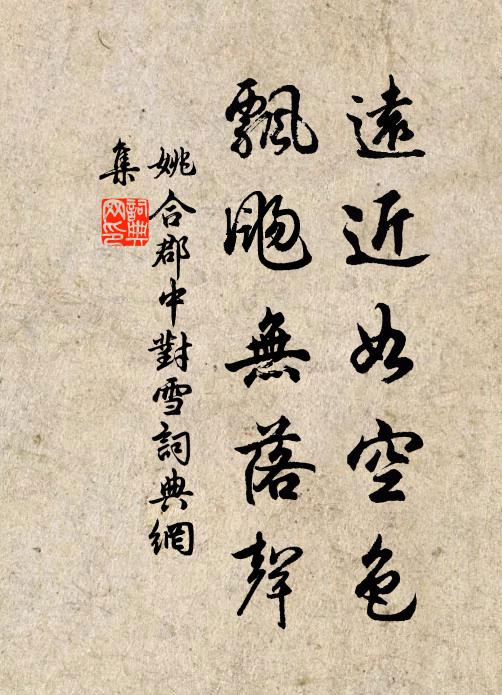 遠近如空色
飄颺無落聲
姚合郡中對雪詞典網
集
詞典
网印